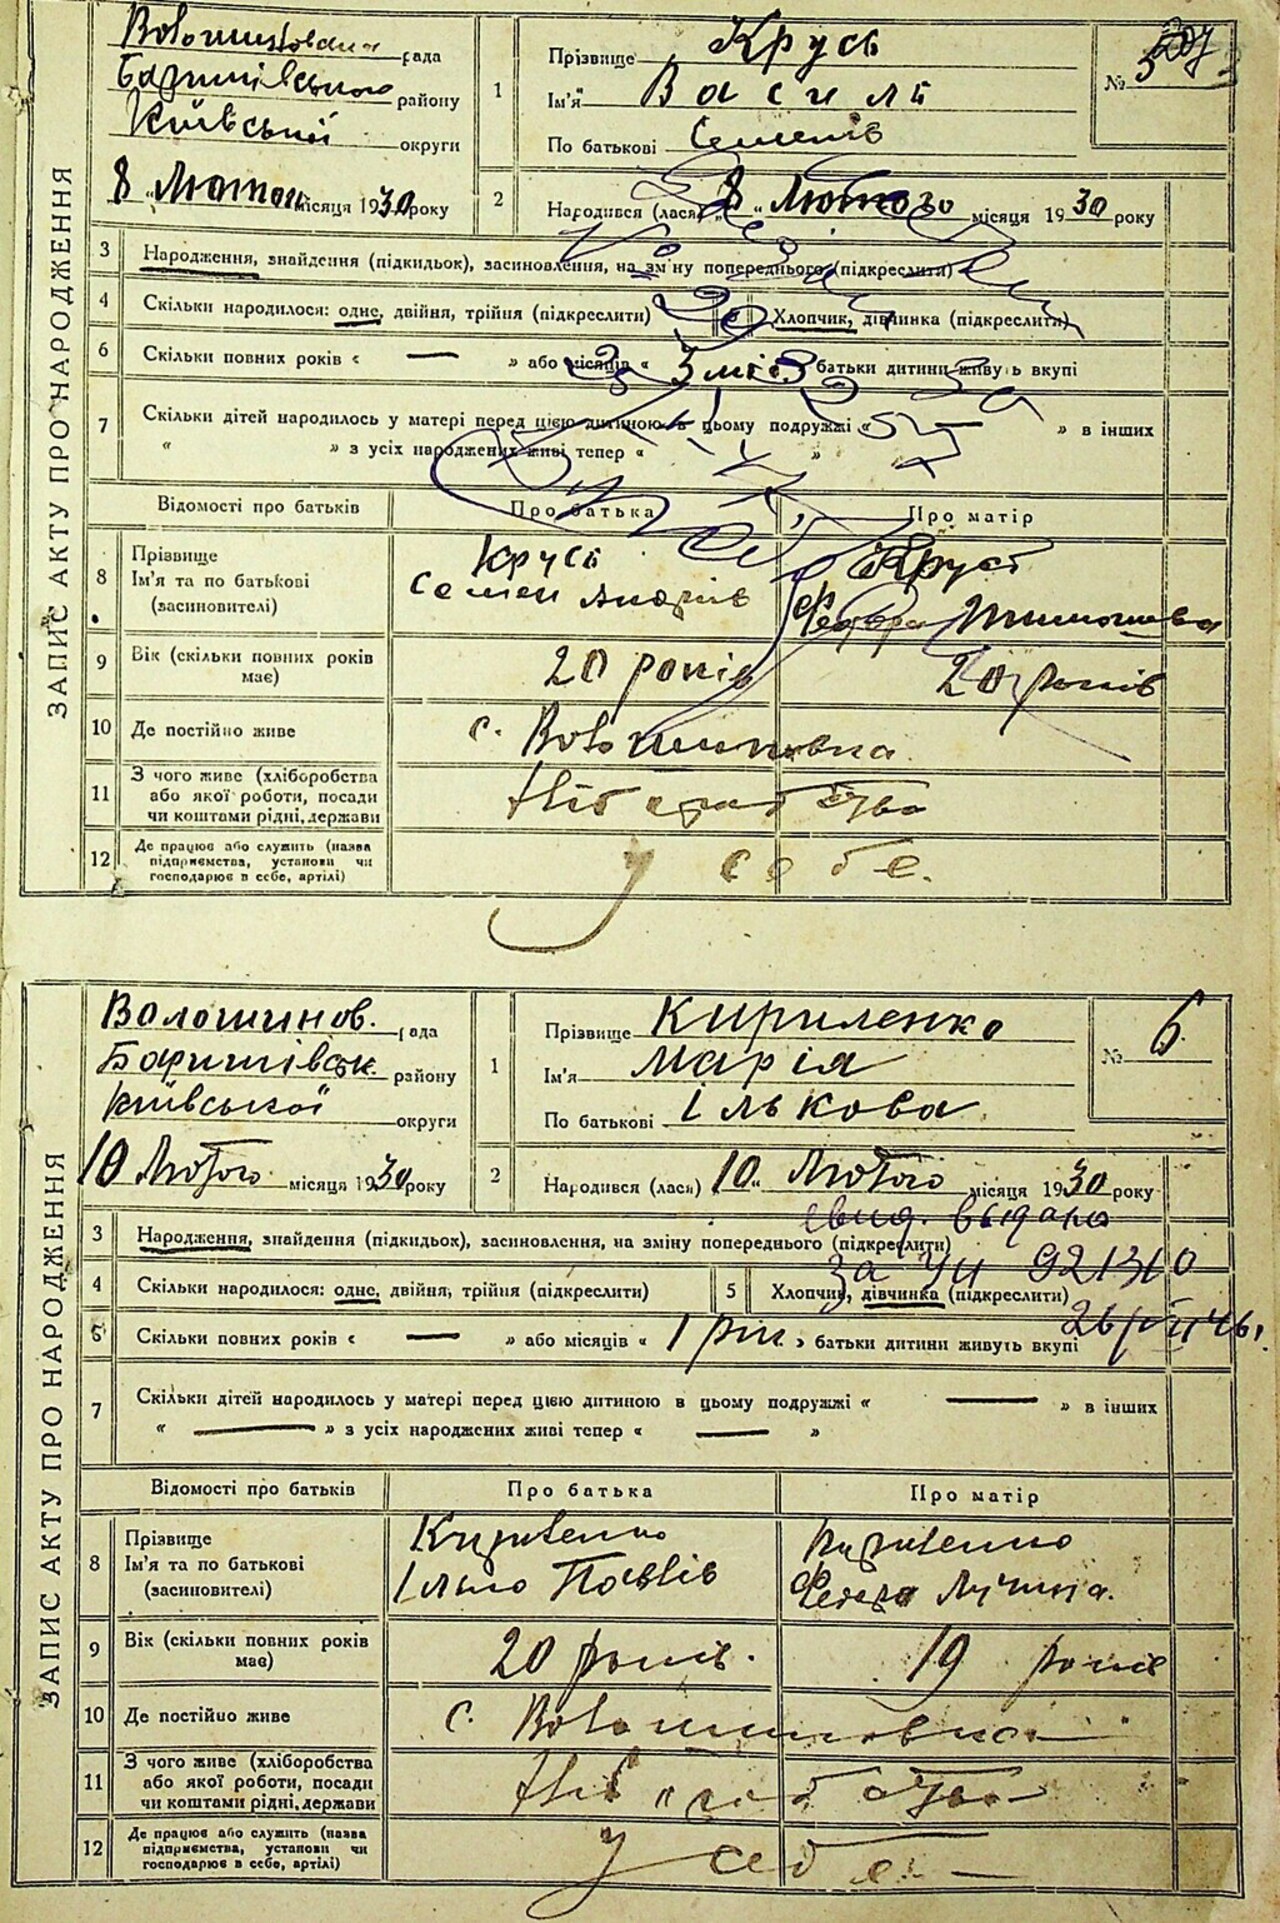 ЗАПИС АКТУ ПРО НАРОДЖЕННЯ
рада
Баришівського району
Київської округи
8 „ Лютого місяця 1930 року
1 Прізвище Крусь
Ім'я Василь
По батькові Семенів
№ 5
2 Народився (лася) „ 8 “ Лютого місяця 1930 року
3 Народження, знайдення (підкидьок), засиновлення, на зміну попереднього (підкреслити)
4 Скільки народилося: одне, двійня, трійня (підкреслити) 5 Хлопчик, дівчинка (підкреслити)
6 Скільки повних років « — » або місяців « батьки дитини живуть вкупі
7 Скільки дітей народилось у матері перед цією дитиною в цьому подружжі « — » в інших
« » з усіх народжених живі тепер « »
Відомості про батьків Про батька Про матір
8 Прізвище
Ім'я та по батькові
(засиновителі)
Крусь
Семен Андріїв
Крусь
Федора Тимошева
9 Вік (скільки повних років
має) 20 років 20 років
10 Де постійно живе с. Волошиновка
11 З чого живе (хліборобства
або якої роботи, посади
чи коштами рідні, держави
Хліборобство
12 Де працює або служить (назва
підприємства, установи чи
господарює в себе, артілі)
у себе.
ЗАПИС АКТУ ПРО НАРОДЖЕННЯ
Волошинов. рада
Баришівськ. району
Київської округи
10 Лютого місяця 1930 року
1 Прізвище Кириленко
Ім'я Марія
По батькові Ількова
№ 6
2 Народився (лася) 10 “ Лютого місяця 1930 року
свид. выдано
3 Народження, знайдення (підкидьок), засиновлення, на зміну попереднього (підкреслити)
за 921310
4 Скільки народилося: одне, двійня, трійня (підкреслити) 5 Хлопчик, дівчинка (підкреслити)
6 Скільки повних років « — » або місяців « 1 рік. » батьки дитини живуть вкупі
7 Скільки дітей народилось у матері перед цією дитиною в цьому подружжі « — » в інших
« — » з усіх народжених живі тепер « — »
Відомості про батьків Про батька Про матір
8 Прізвище
Ім'я та по батькові
(засиновителі)
Кириленко
Ілько Павлів
Кириленко
Федора
9 Вік (скільки повних років
має) 20 років. 19 років
10 Де постійно живе с. Волошиновка
11 З чого живе (хліборобства
або якої роботи, посади
чи коштами рідні, держави
Хліборобство
12 Де працює або служить (назва
підприємства, установи чи
господарює в себе, артілі)
у себе